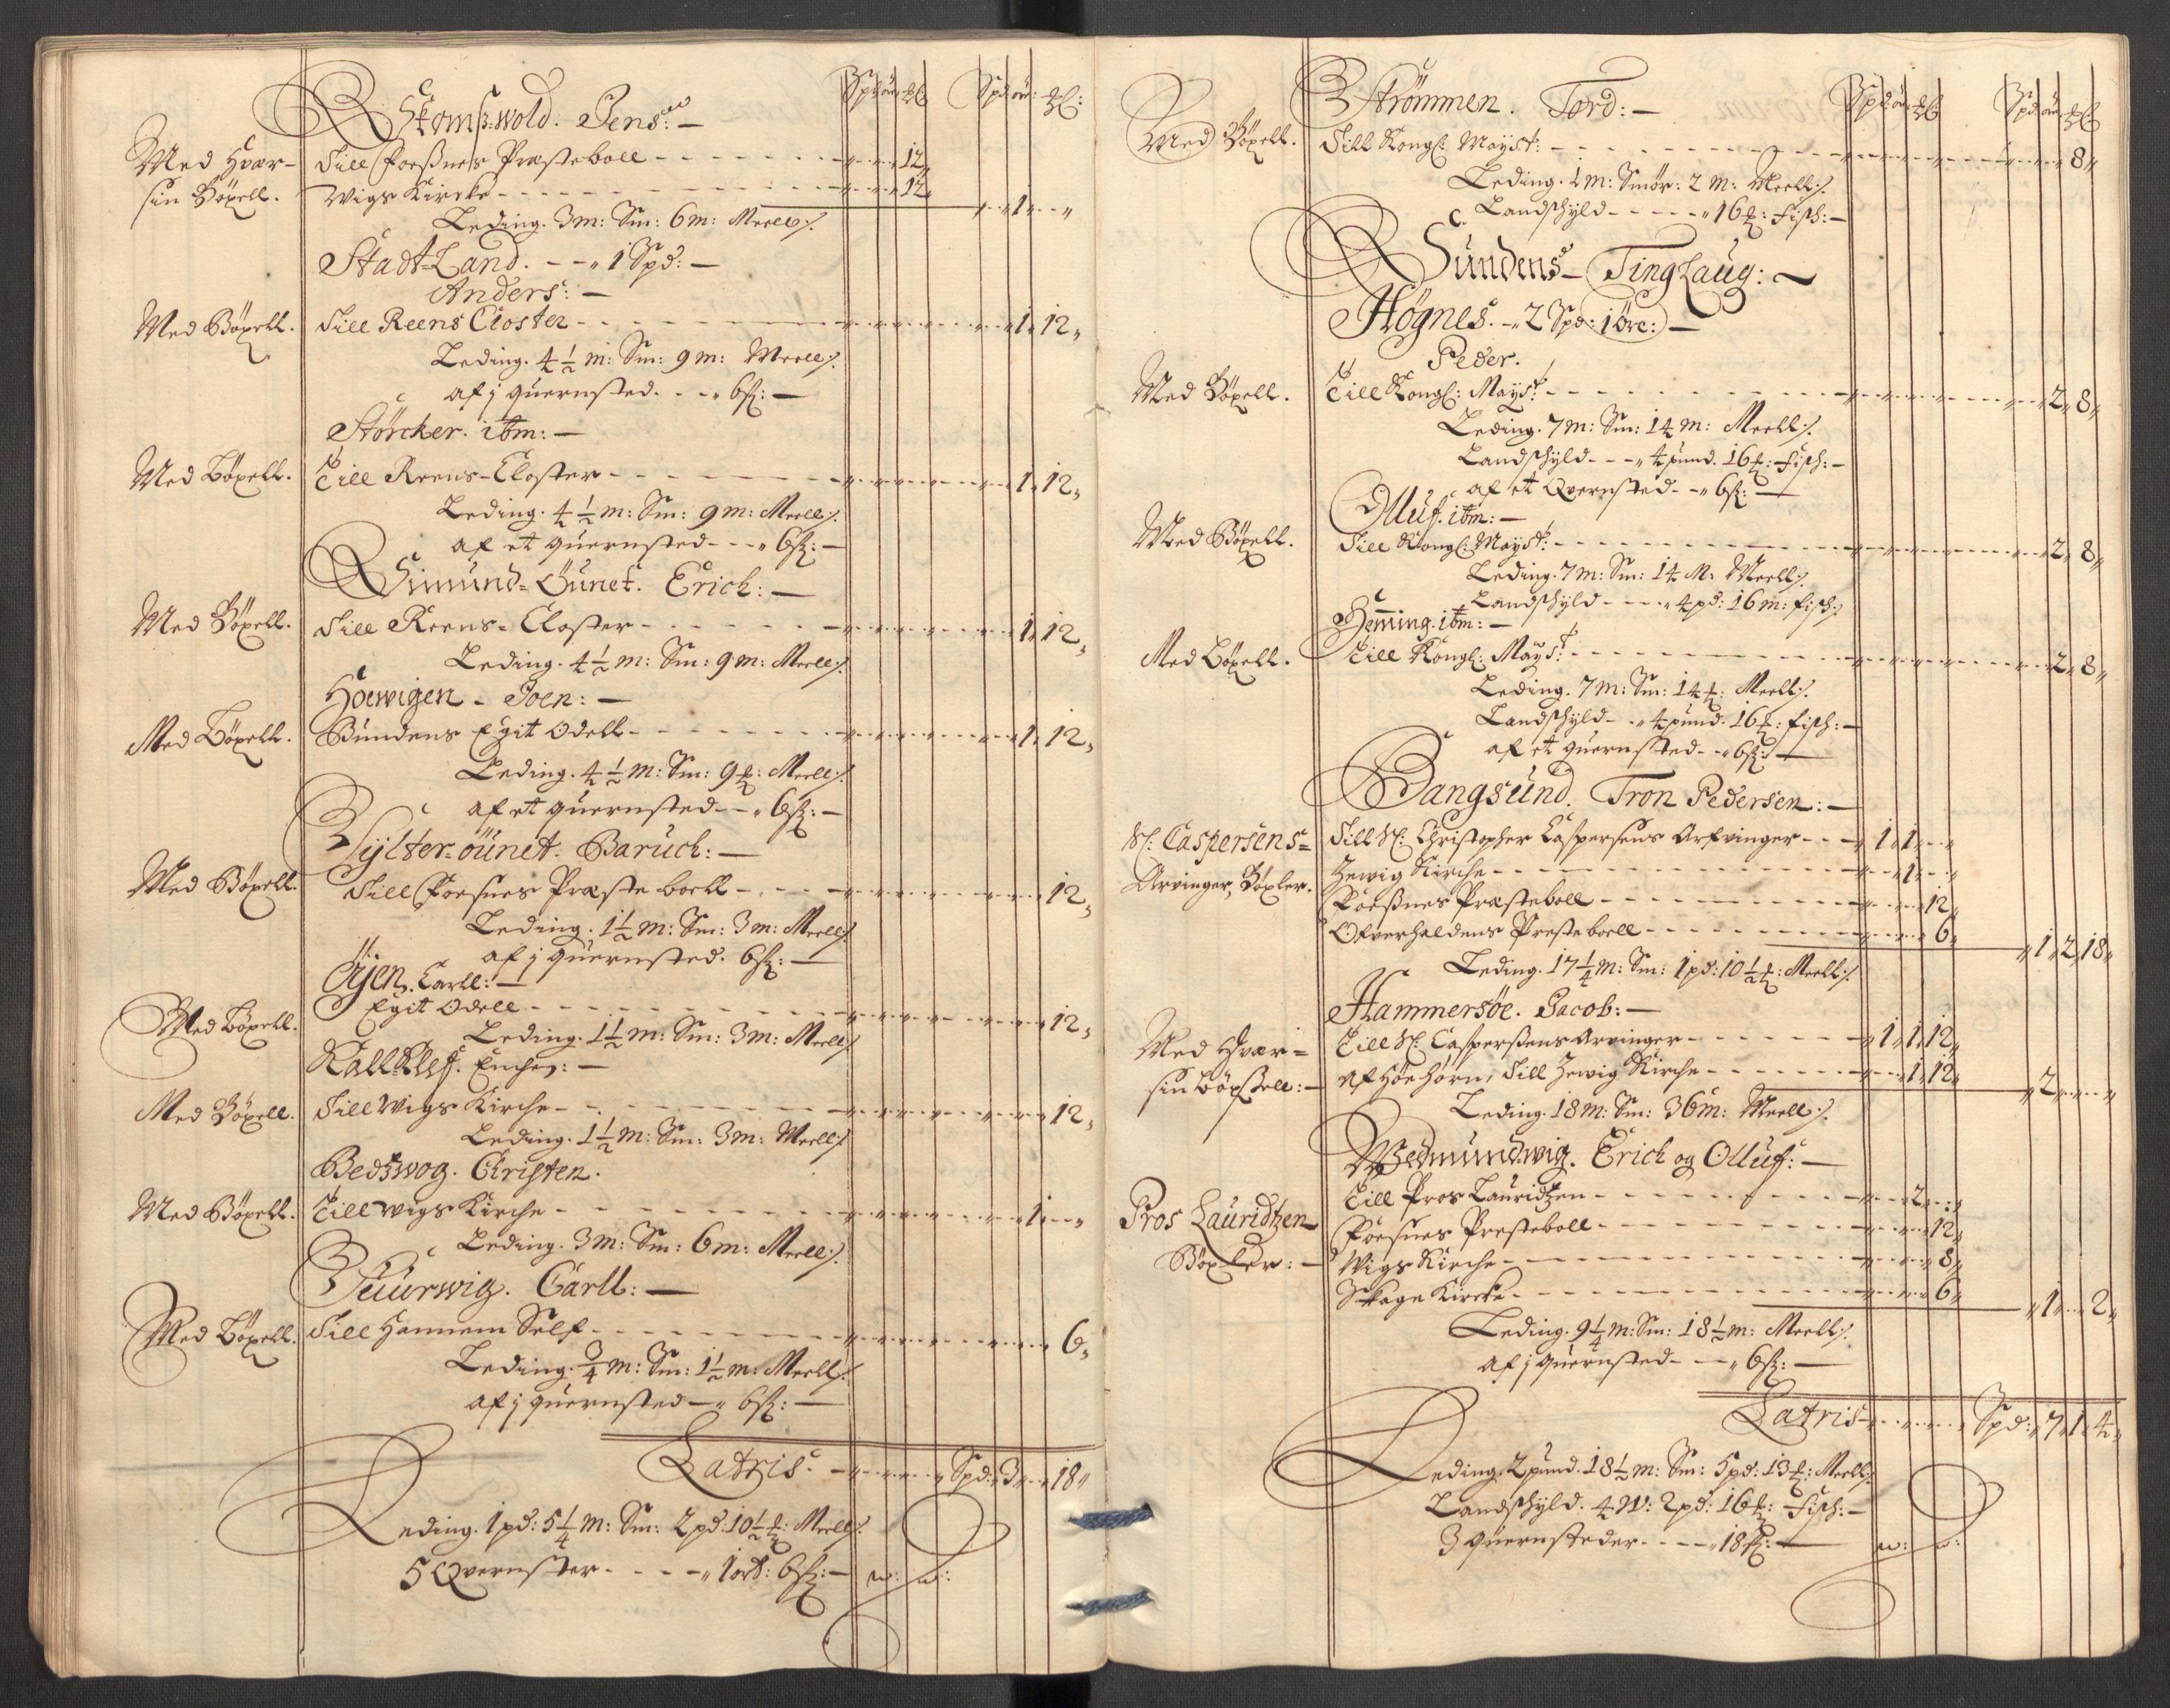 Spd: ör: mk: Spd: ör: mk:
Skomswold. Jens: —
Med Hvær- Till Foeßnes Præsteboell - - - 12
sin Böxell. Wigs Kircke - - - 12 1 "
Leding. 3 m: Sm: 6 m: Meell
Stadt-Land. - - 1 Spd: —
Anders: —
Med Böxell. Till Reens Closter - - - 1 12
Leding. 4 1/2 m: Sm: 9 m: Meell
af j quernsted - - 6 sk: —
Störcker. ibm: —
Med Böxell. Till Reens-Closter - - - 1 12
Leding. 4 1/2 m: Sm: 9 m: Meell
af et quernsted - - 6 sk: —
Simund-Öunet. Erich: —
Med Böxell. Till Reens-Closter - - - 1 12
Leding. 4 1/2 m: Sm: 9 m: Meell
Hoewigen - Joen: —
Med Böxell. Bundens Egit Odell - - - 1 12
Leding. 4 1/2 m: Sm: 9 mk: Meell
af et quernsted - - 6 sk: —
Sylter-öunet. Baruch: —
Med Böxell. Till Foesnes Præsteboell - - - 12
Leding. 1 1/2 m: Sm: 3 m: Meell
af j quernsted. 6 sk: —
Öÿen. Carll: —
Med Böxell. Egit Odell - - - 12
Leding. 1 1/2 m: Sm: 3 m: Meell
Enche: —
Med Böxell. Till Wigs Kirche - - - 12
Leding. 1 1/2 m: Sm: 3 m: Meell
Christen.
Med Böxell. Till Wigs Kirche - - - 1 "
Leding. 3 m: Sm: 6 m: Meell
Duurwig. Carll: —
Med Böxell. Till Hannem Self - - - 6
Leding. 3/4 m: Sm: 1 1/2 m: Meell
af j quernsted — 6 sk: —
Latris - - - Spd: 3 " 18
Leding. 1 pd: 5 1/4 m: Sm: 2 pd: 10 1/2 mk: Meell
5 Qvernster - - - 1 ort: 6 sk: —
Spd: ör: mk: Spd: ör: mk:
Strömmen. Tord: —
Med Böxell. Till Kongl: Mayst: - - - 8
Leding. 1 m: Smör: 2 m: Meell
Landschyld - - - 16 mk: fisch: —
Sundens- TingLaug: —
Högnes. - 2 Spd: 1 öre: —
Peder.
Med Böxell. Till Kongl: Mayst: - - - 2 8
Leding. 7 m: Sm: 14 m: Meell
Landschyld - - - 4 pund. 16 mk: fisch: —
af et Qvernsted - - 6 sk: —
Olluf. ibm: —
Med Böxell. Till Kongl: Mayst: - - - 2 8
Leding. 7 m: Sm: 14 M: Meell
Landschyld - - - 4 pd: 16 m: fisch:
Heming. ibm: —
Med Böxell. Till Kongl: Mayst: - - - 2 8
Leding. 7 m: Sm: 14 mk: Meell
Landschyld - - 4 pund. 16 mk: fisch: —
af et quernsted - - 6 sk: —
Bangsund. Tron Pedersen: —
Sl: Caspersens= Till Sl: Christopher Caspersens Arfvinger - - - 1 1 "
Arvinger, Böxler. Zewig Kirche - - - 1 "
Foeßnes Præsteboell - - - 12
Ofverhaldens Presteboell - - - 6 1 2 18
Leding. 17 1/4 m: Sm: 1 pd: 10 1/2 mk: Meell
Hammersöe. Jacob: —
Med Hvær= Till Sl: Casperßens Arvinger - - - 1 1 12
sin Böxsell: — Af Höehörn, Till Zewig Kirche - - - 1 12 2 "
Leding. 18 m: Sm: 36 m: Meell
Wedmundwig. Erich og Olluf: —
Pros Lauridtzen Till Pros Lauridtzen - - - 2 "
Böxler: — Foesnes Presteboll - - - 12
Wigs Kirche - - - 8
Skage Kircke - - - 6 1 " 2
Leding. 9 1/4 m: Sm: 18 1/2 m: Meell
af j quernsted - - 6 sk: —
Latris - - - Spd: 7 1 4
Leding. 2 pund. 18 1/2 m: Sm: 5 pd: 13 mk: Meell
Landschyld. 4 W: 2 pd: 16 mk: fisch: —
3 quernsteder - - - 18 sk: —